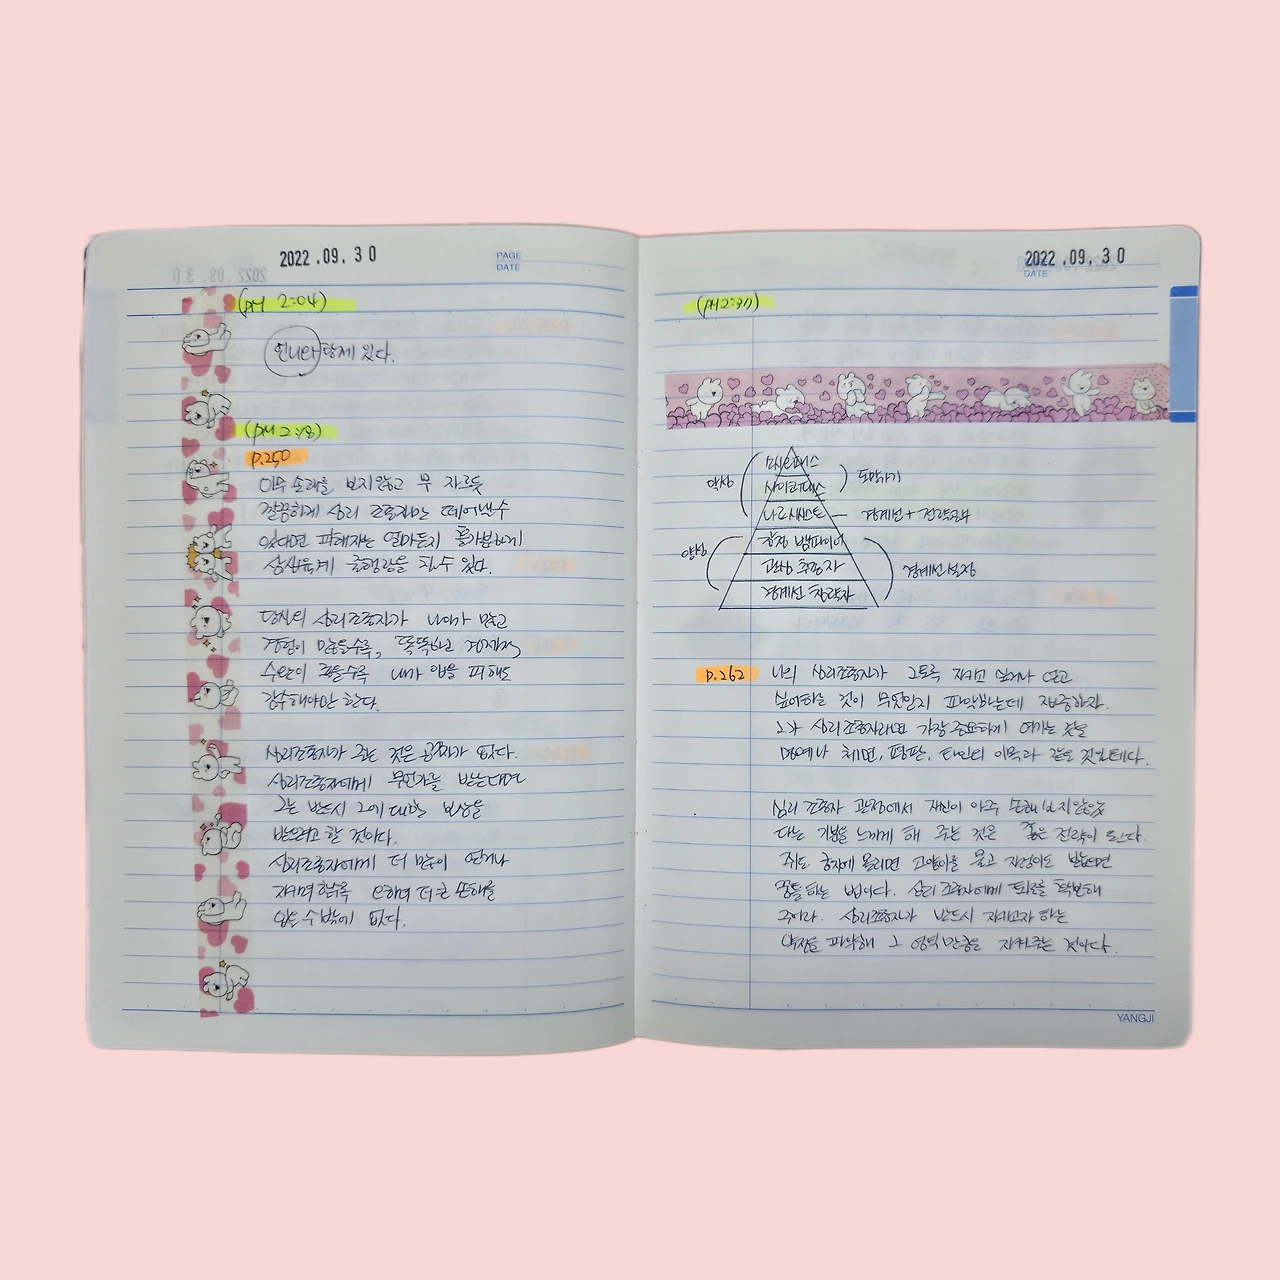 2022.09.30
PAGE
DATE
(PM 2:04)
언니와 함께 있다.
(PM 2:18)
p.250
아무 손해를 보지 않고 무 자르듯
깔끔하게 심리 조종자만 떼어낼 수
있다면 피해자는 얼마든지 홀가분하게
삼십육계 줄행랑을 칠 수 있다.
당신의 심리조종자가 나이가 많고
경험이 많을수록, 똑똑하고 경제적
수완이 좋을수록 내가 입을 피해도
감수해야만 한다.
심리조종자가 주는 것은 공짜가 없다.
심리조종자에게 무언가를 받는다면
그는 반드시 그에 대한 보상을
받으려고 할 것이다.
심리조종자에게 더 많이 얻거나
지키려 할수록 오히려 더 큰 손해를
입을 수밖에 없다.
2022.09.30
DATE
(PM 2:37)
소시오패스
악성 사이코패스 도망가기
나르시시스트 — 경계선 + 전략공부
양성 감정 뱀파이어
관심 추종자 경계선 설정
경계선 침략자
p.262 나의 심리조종자가 그토록 지키고 잃거나 않고
싶어하는 것이 무엇인지 파악하는데 집중하자.
그가 심리조종자라면 가장 중요하게 여기는 것은
명예나 체면, 평판, 타인의 이목과 같은 것일테다.
심리 조종자 관점에서 자신이 아주 손해 보지 않았
다는 기분을 느끼게 해 주는 것은 좋은 전략이 된다.
쥐도 궁지에 몰리면 고양이를 물고 지렁이도 밟으면
꿈틀하는 법이다. 심리 조종자에게 퇴로를 확보해
주어라. 심리조종자가 반드시 지키고자 하는
약점을 파악해 그 영역만큼은 지켜주는 것이다.
YANGJI